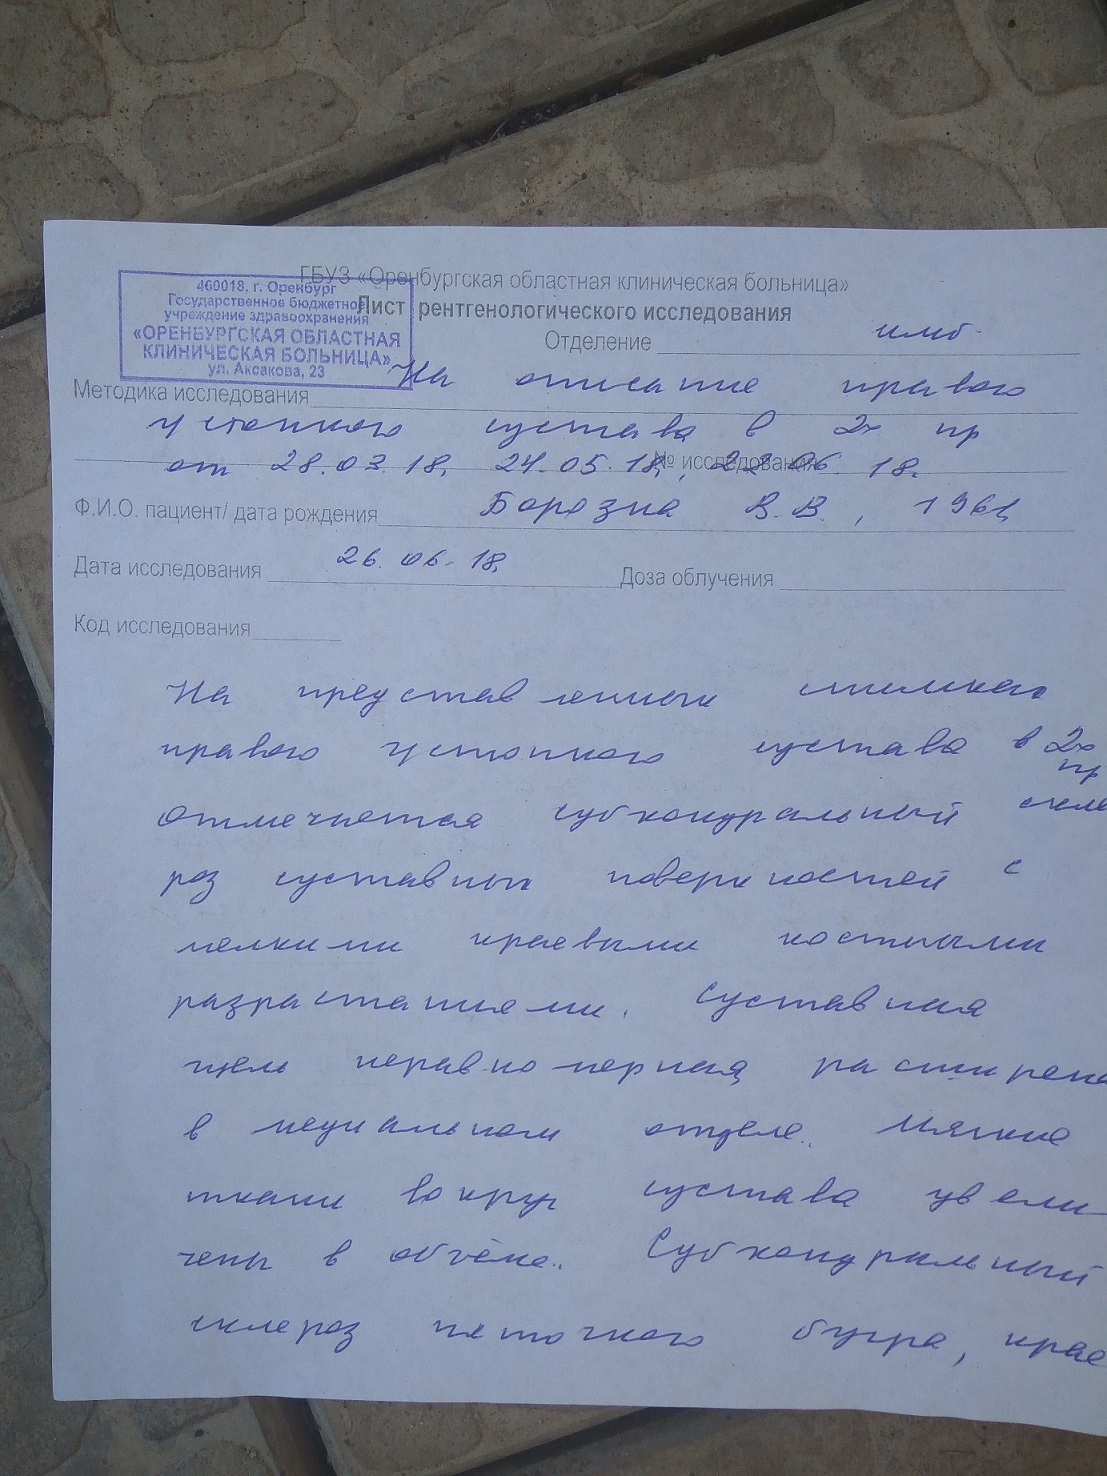 ГБУЗ «Оренбургская областная клиническая больница»
460018. г. Оренбург
Государственное бюджетное
учреждение здравоохранения
«ОРЕНБУРГСКАЯ ОБЛАСТНАЯ
КЛИНИЧЕСКАЯ БОЛЬНИЦА»
ул. Аксакова, 23
Лист рентгенологического исследования
Отделение
Методика исследования На описание правого
голеностопного сустава в 2х пр
от 28.03.18, 24.05.18, 22.06.18.
№ исследования
Ф.И.О. пациент/ дата рождения Борозна В.В., 1961
Дата исследования 26.06.18.
Доза облучения
Код исследования
На представленных снимках
правого сустава в 2х пр
отмечается субхондральный скле
роз суставных поверхностей с
мелкими краевыми костными
разрастаниями. Суставная
щель неравномерная, расширена
в медиальном отделе. Мягкие
ткани вокруг сустава увели-
чены в объёме. Субхондральный
склероз пяточного бугра, крае